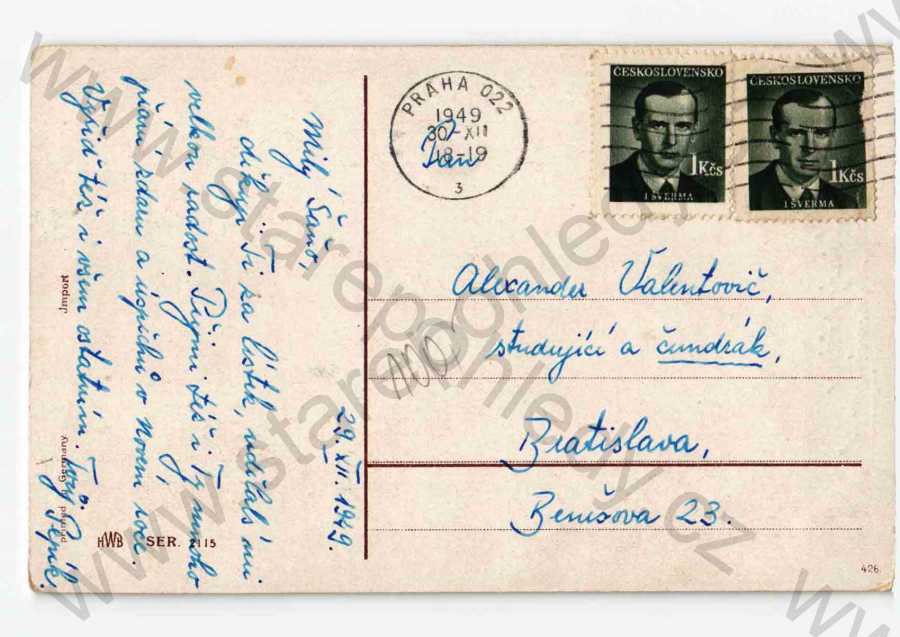 29. XII. 1949.
Milý Sašo,
děkuji Ti za lístek, udělals mi
velkou radost. Přijmi též i Ty mnoho
přání zdaru a úspěchů v novém roce.
Vyřiď též i všem ostatním. Tvůj
PRAHA 022
1949
30. XII
18-19
3
ČESKOSLOVENSKO
1 Kčs
J. ŠVERMA
ČESKOSLOVENSKO
1 Kčs
J. ŠVERMA
Pan
Alexander Valentovič,
studující a čundrák,
Bratislava,
Benešova 23.
Import
printed in Germany
HWB SER. 2115
426.
www.starepohledy.cz